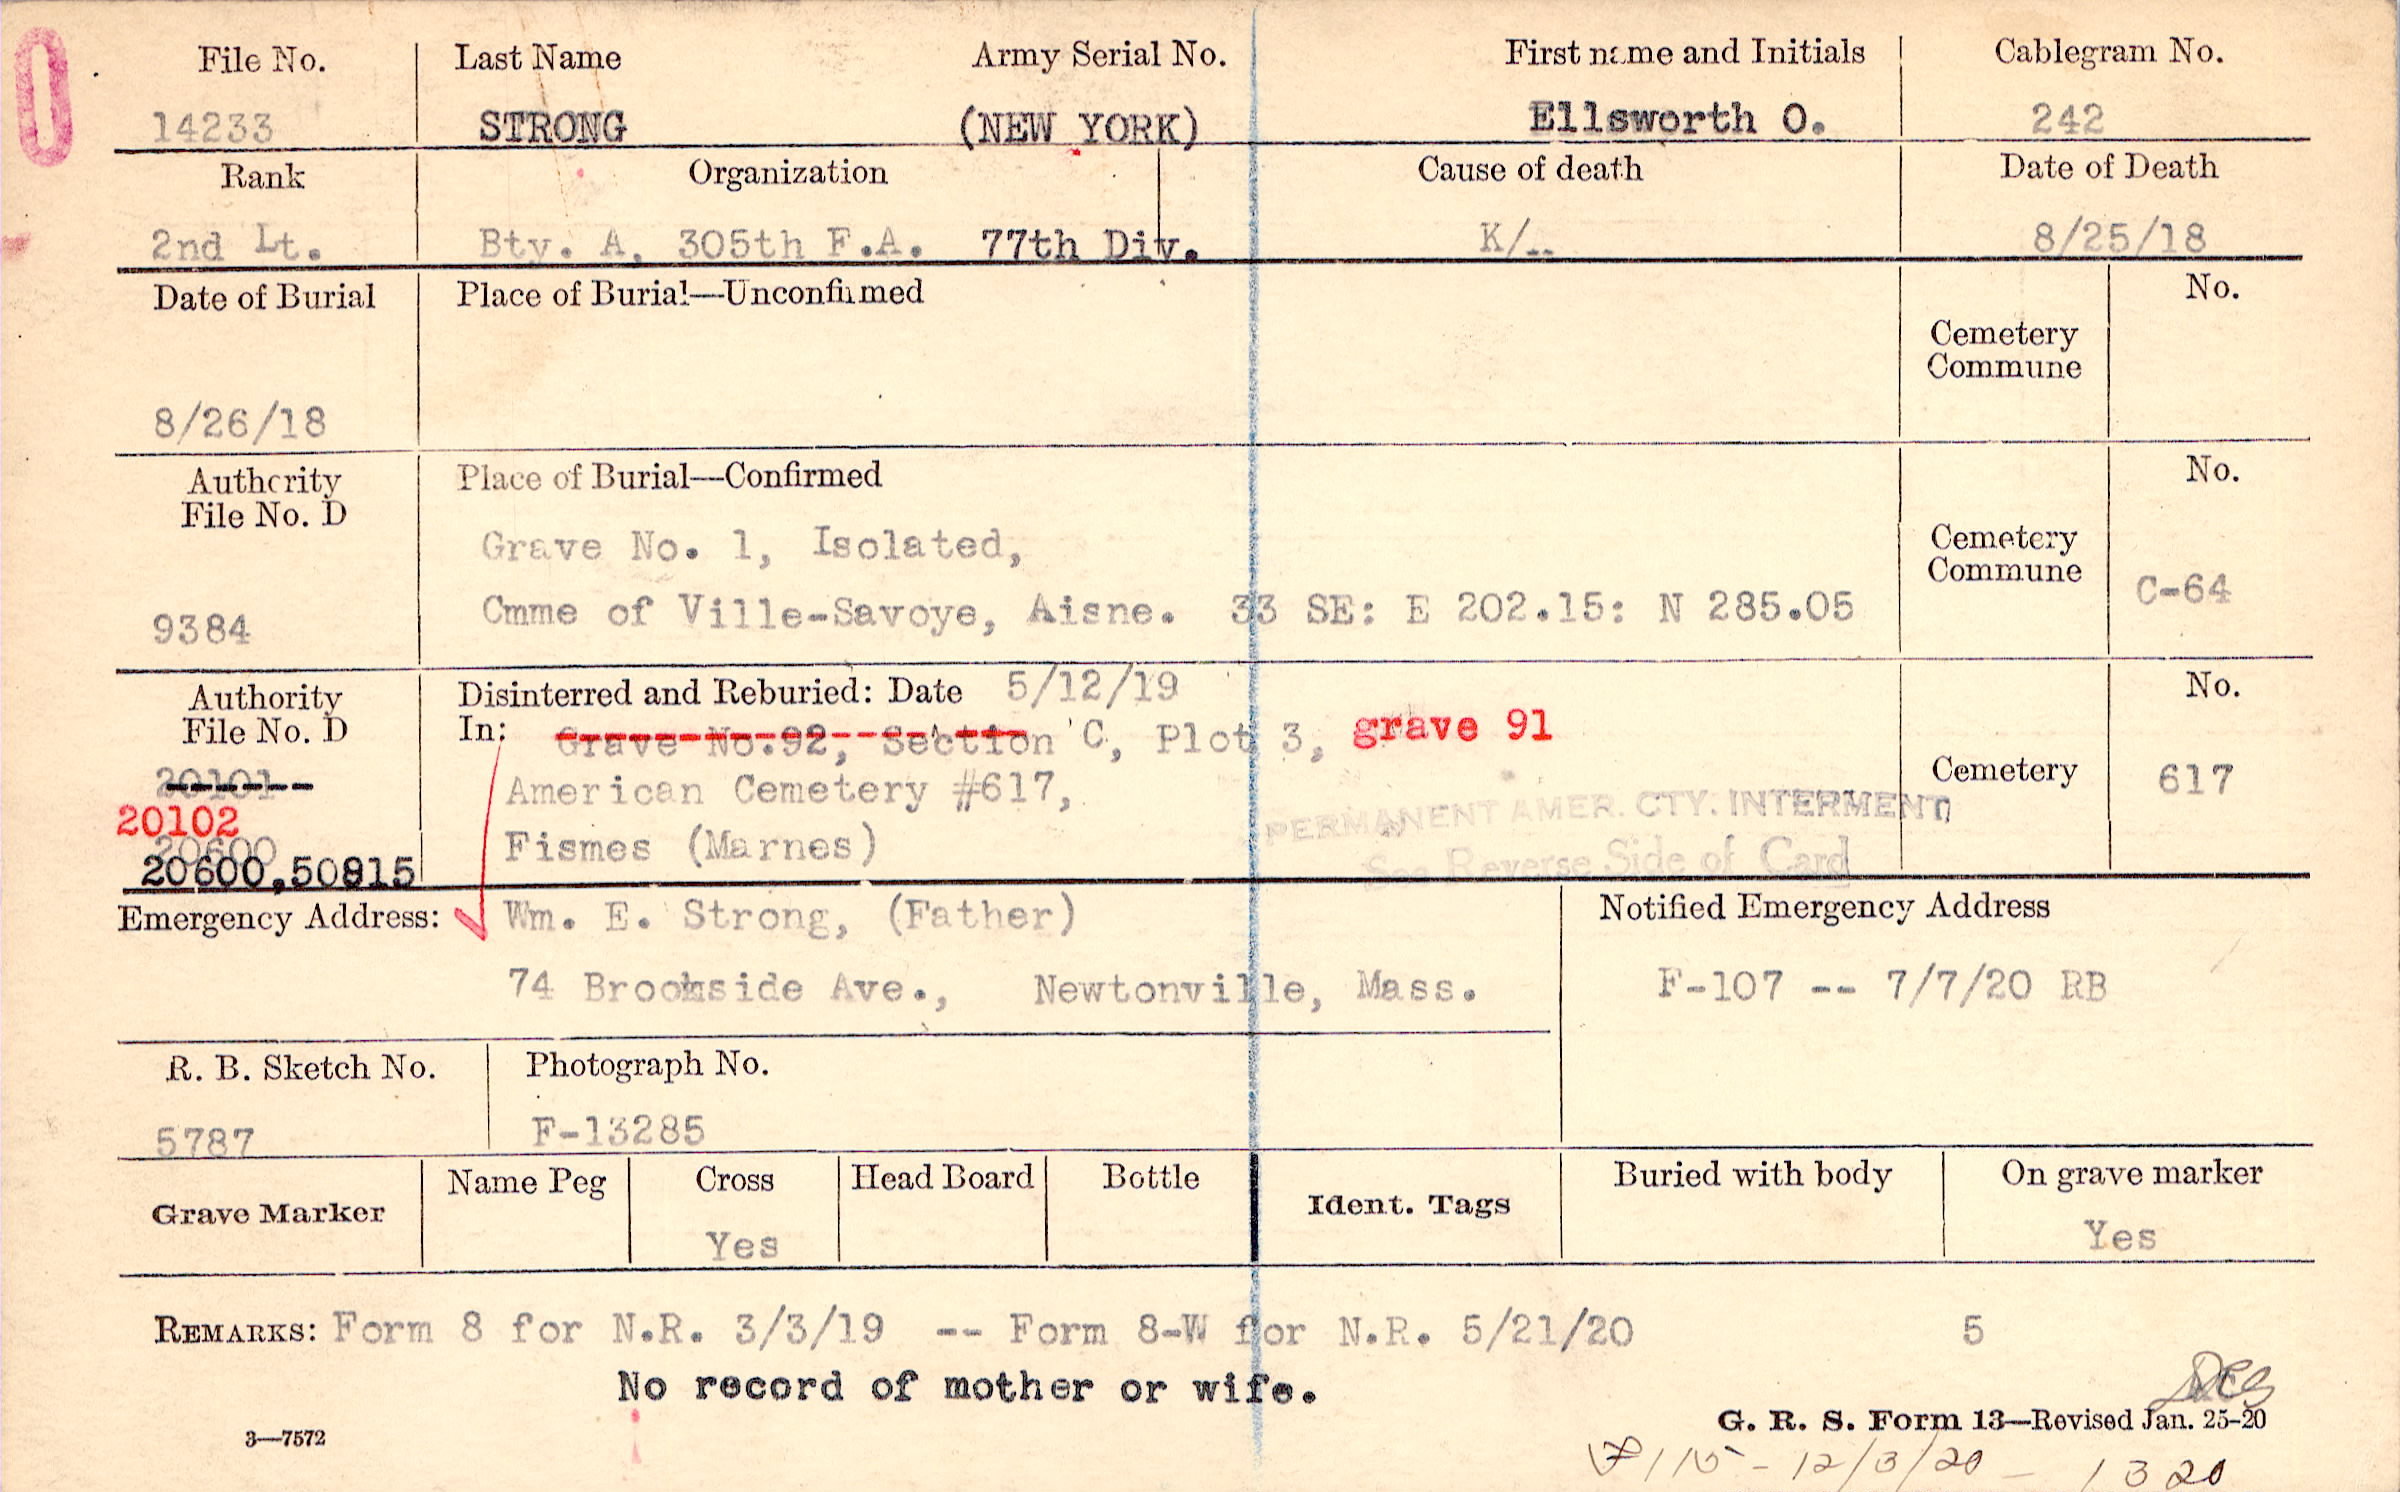 File No. Last Name Army Serial No. First name and Initials Cablegram No.
14233 STRONG (NEW YORK) Ellsworth O. 242
Rank Organization Cause of death Date of Death
2nd Lt. Bty. A, 305th F.A. 77th Div. K/ 8/25/18
Date of Burial Place of Burial—Unconfirmed No.
Cemetery
Commune
8/26/18
Authority Place of Burial—Confirmed No.
File No. D
Grave No. 1, Isolated,
Cemetery
Commune
9384 Cmme of Ville-Savoye, Aisne. 33 SE: E 202.15: N 285.05 C-64
Authority Disinterred and Reburied: Date 5/12/19 No.
File No. D In: Grave No.92, Section C, Plot 3, grave 91
20101 American Cemetery #617, Cemetery 617
20102 PERMANENT AMER. CTY. INTERMENT
20600 Fismes (Marnes) See Reverse Side of Card
20600,50815
Emergency Address: Wm. E. Strong, (Father) Notified Emergency Address
74 Brookside Ave., Newtonville, Mass. F-107 -- 7/7/20 RB
R. B. Sketch No. Photograph No.
5787 F-13285
Grave Marker Name Peg Cross Head Board Bottle Ident. Tags Buried with body On grave marker
Yes Yes
REMARKS: Form 8 for N.R. 3/3/19 -- Form 8-W for N.R. 5/21/20 5
No record of mother or wife.
G. R. S. Form 13—Revised Jan. 25-20
3—7572
115 - 12/3/20 - 1320